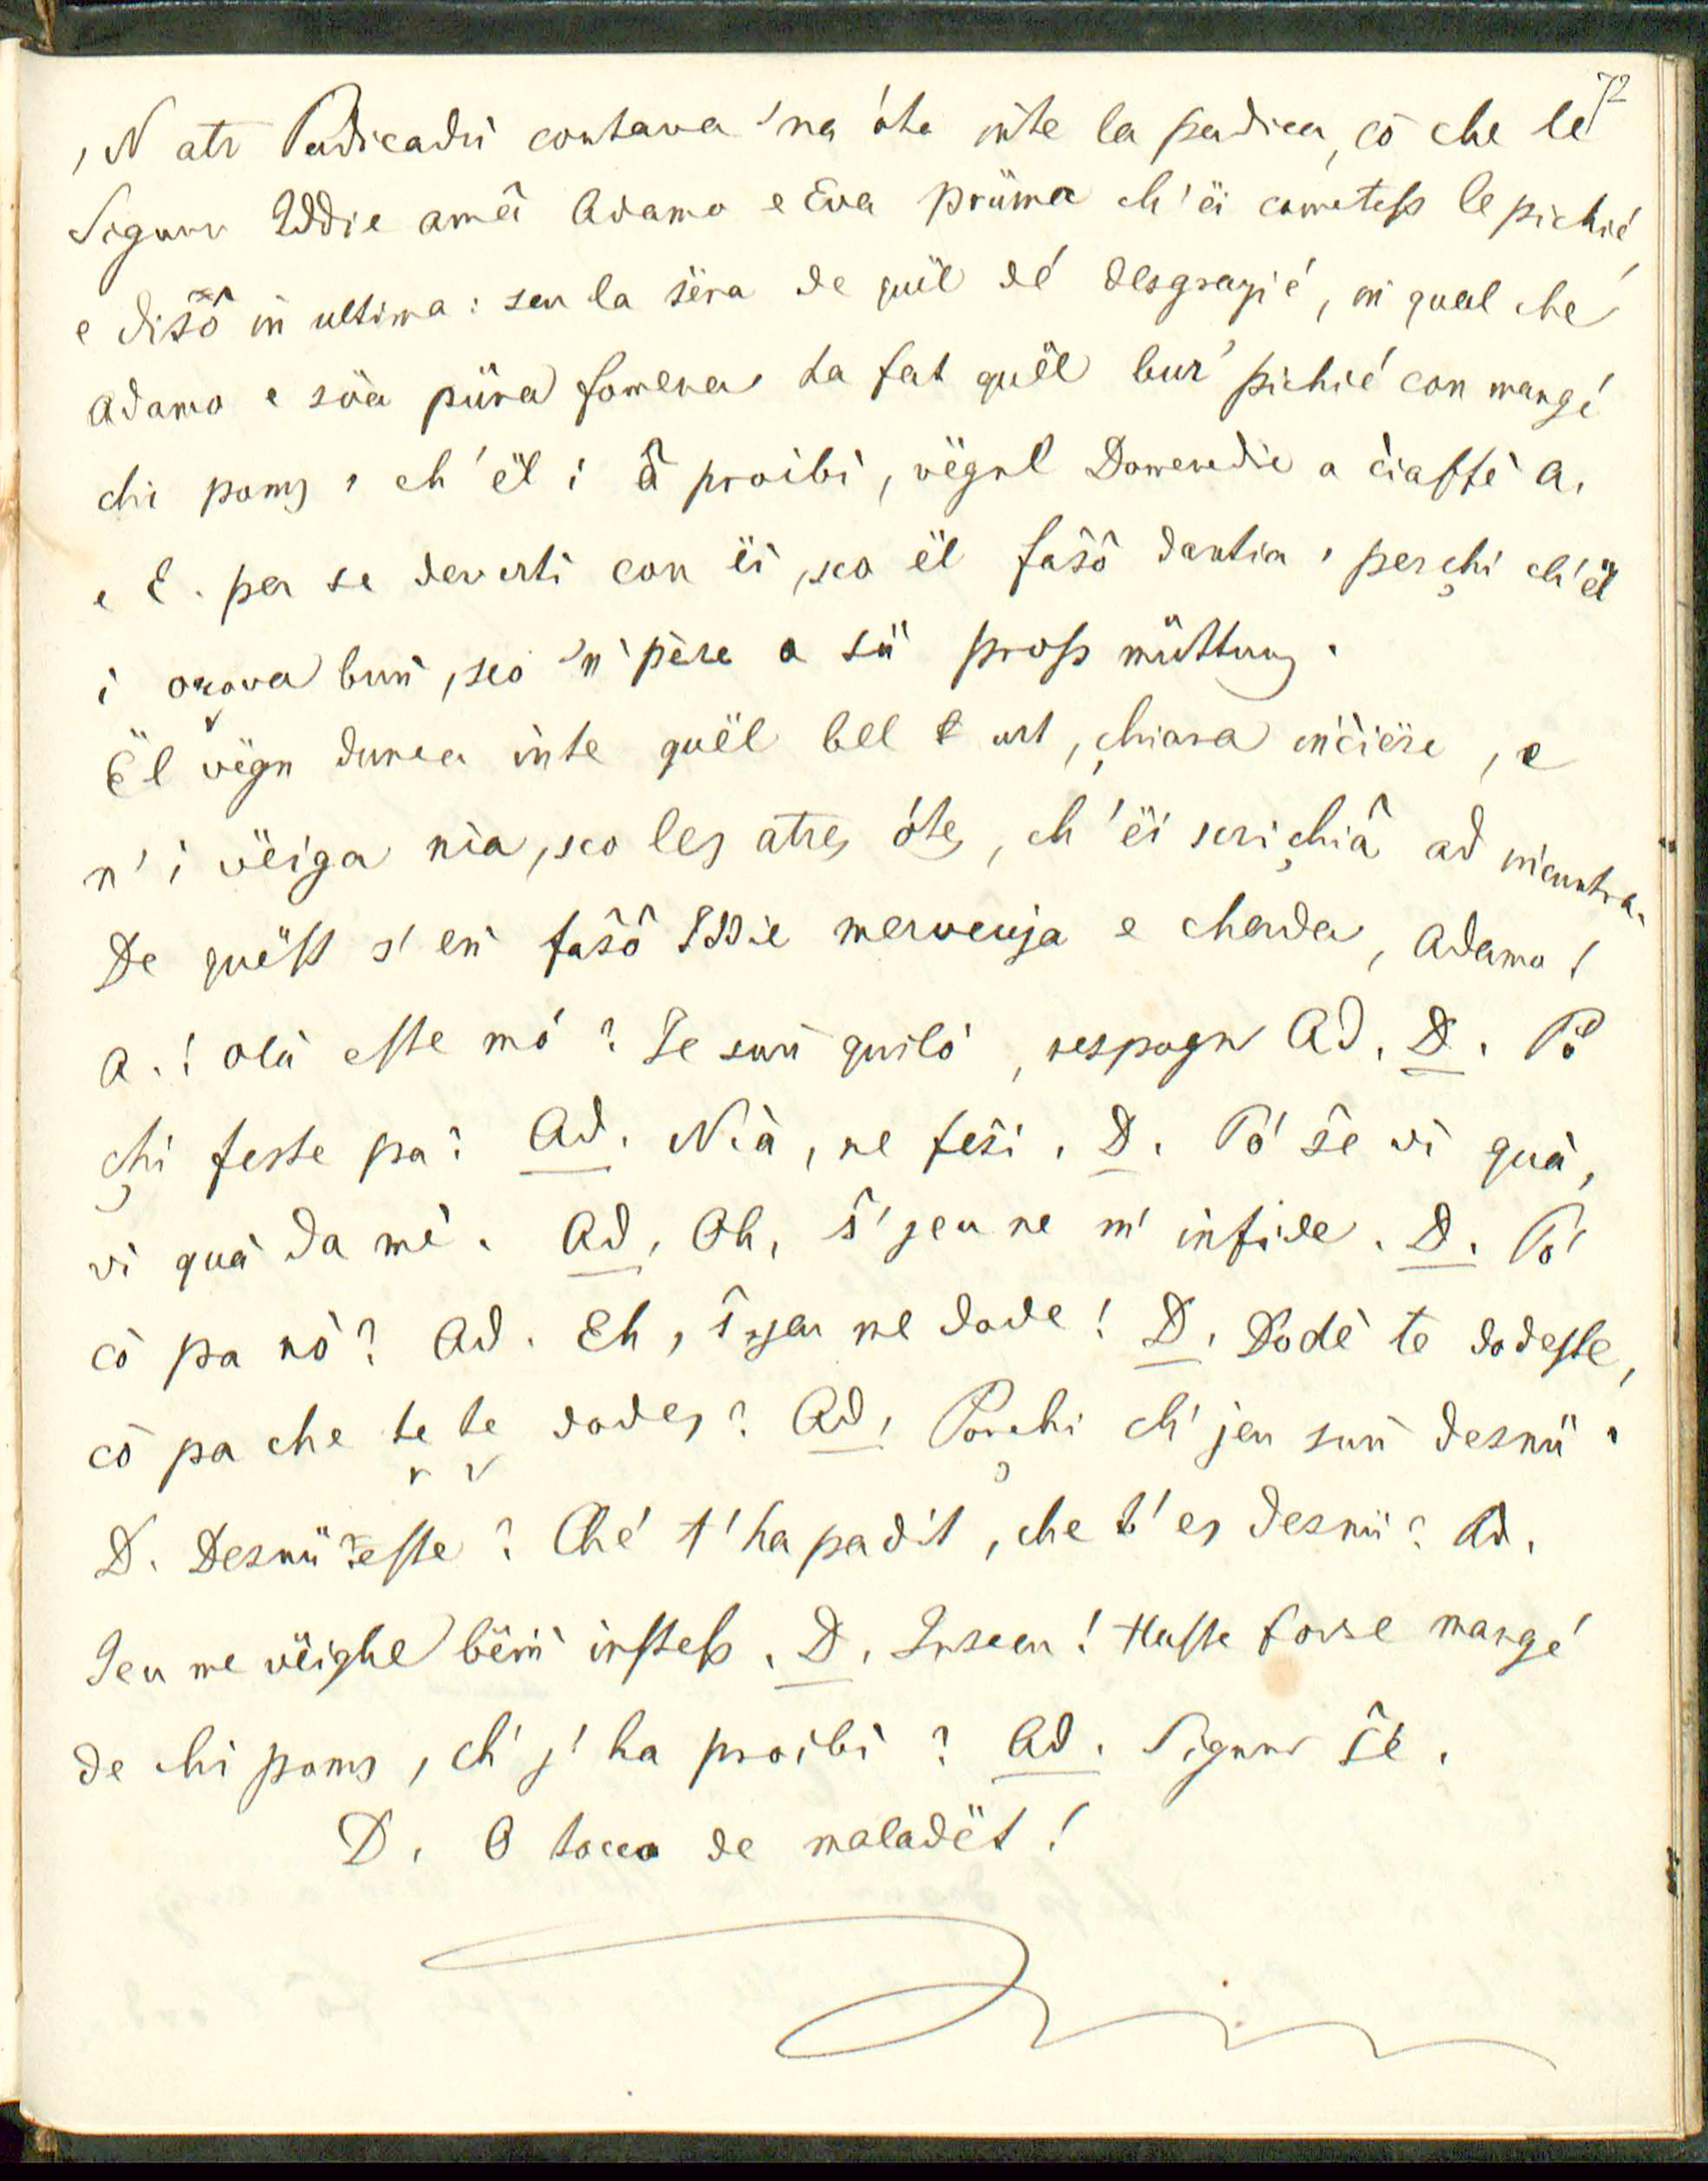 72
'N atr Padicadù contava 'na óta inte la padica, cö che le
Signur Iddie amâ Adamo e Eva prüma ch' ëi cometess le pichié,
e disô in ultima: seu la sëra de quël dé desgrazié, in qual che
Adamo e süa püra fomena ha fat quël bur pichié con mangé
chi poms, ch' ël i â proibì, vëgnl Domenedie a ciaffè A.
e E. per se devertì con ëi, sco ël fasô dantin, perchi ch'ël
i orova bun, sco 'n père a sü pross müttung.
Ël vëgn dunca inte quël bel urt, chiara inciёre, e
n' i vëiga nia, sco les atres ótes, ch' ëi scrichiâ ad incuntra.
De quëst s' en fasô Iddie mervëuja e cherda, Adamo!
A.! olà este mó? Je sun quiló, respogn Ad. D. Pö
chi feste pa? Ad. Nià, ne feši. D. Pö šë vì quà,
vì quà da mè. Ad. Oh, š' jeu ne m' infide. D. Pö
cö pa nö? Ad. Eh, š' jeu ne dode! D. Dodè te dodeste,
cö pa che te te dodes? Ad. Porchi ch' jeu sun desnü.
D. Desnü šeste? Ché t' ha pa dit, che t' es desnü? Ad.
Jeu me vëighe bëin instess. D. Insceu! Haste forse mangé
de chi poms, ch' j' ha proibì? Ad. Signur šé.
D. O tocco de maladët!